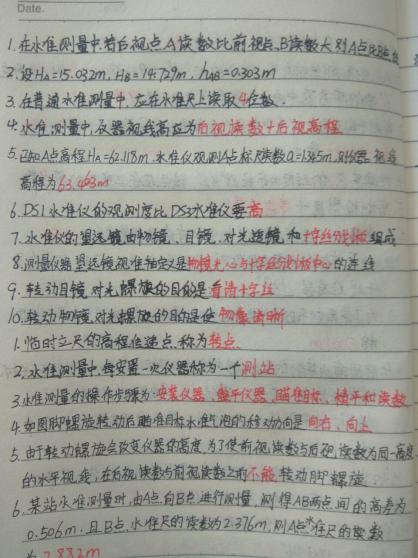 Date.
1.在水准测量中,若后视点A读数比前视点B读数大,则A点比B点低
2.设HA=15.032m, HB=14.729m, hAB=0.303m
3.在普通水准测量中,应在水准尺上读取4位数.
4.水准测量中,仪器视线高应为后视读数+后视高程
5.已知A点高程HA=62.118m.水准仪观测A点标尺读数a=1345m.则仪器视线
高程为63.463m
6.DS1水准仪的观测度比DS3水准仪要高
7.水准仪的望远镜由物镜、目镜、对光透镜和十字丝分划板组成
8.测量仪器望远镜视准轴定义是物镜光心与十字丝分划板中心的连线
9.转动目镜对光螺旋的目的是看清十字丝
10.转动物镜对光螺旋的目的是使物像清晰
1.临时立尺的高程传递点,称为转点
2.水准测量中,每安置一次仪器称为一个测站
3.水准测量的操作步骤为:安装仪器、整平仪器、瞄准目标、精平和读数
4.如图脚螺旋转动后瞄准目标水准气泡的移动方向是向右、向上
5.由于转动螺旋会改变仪器的高度,为了使前视读数与后视读数为同一高度
的水平视线,在后视读数与前视读数之前不能转动脚螺旋
6.某站水准测量时,由A点向B点进行测量,测得AB两点间的高差为
0.506m,且B点水准尺的读数为2.376m,则A点水准尺的读数
为2.882m